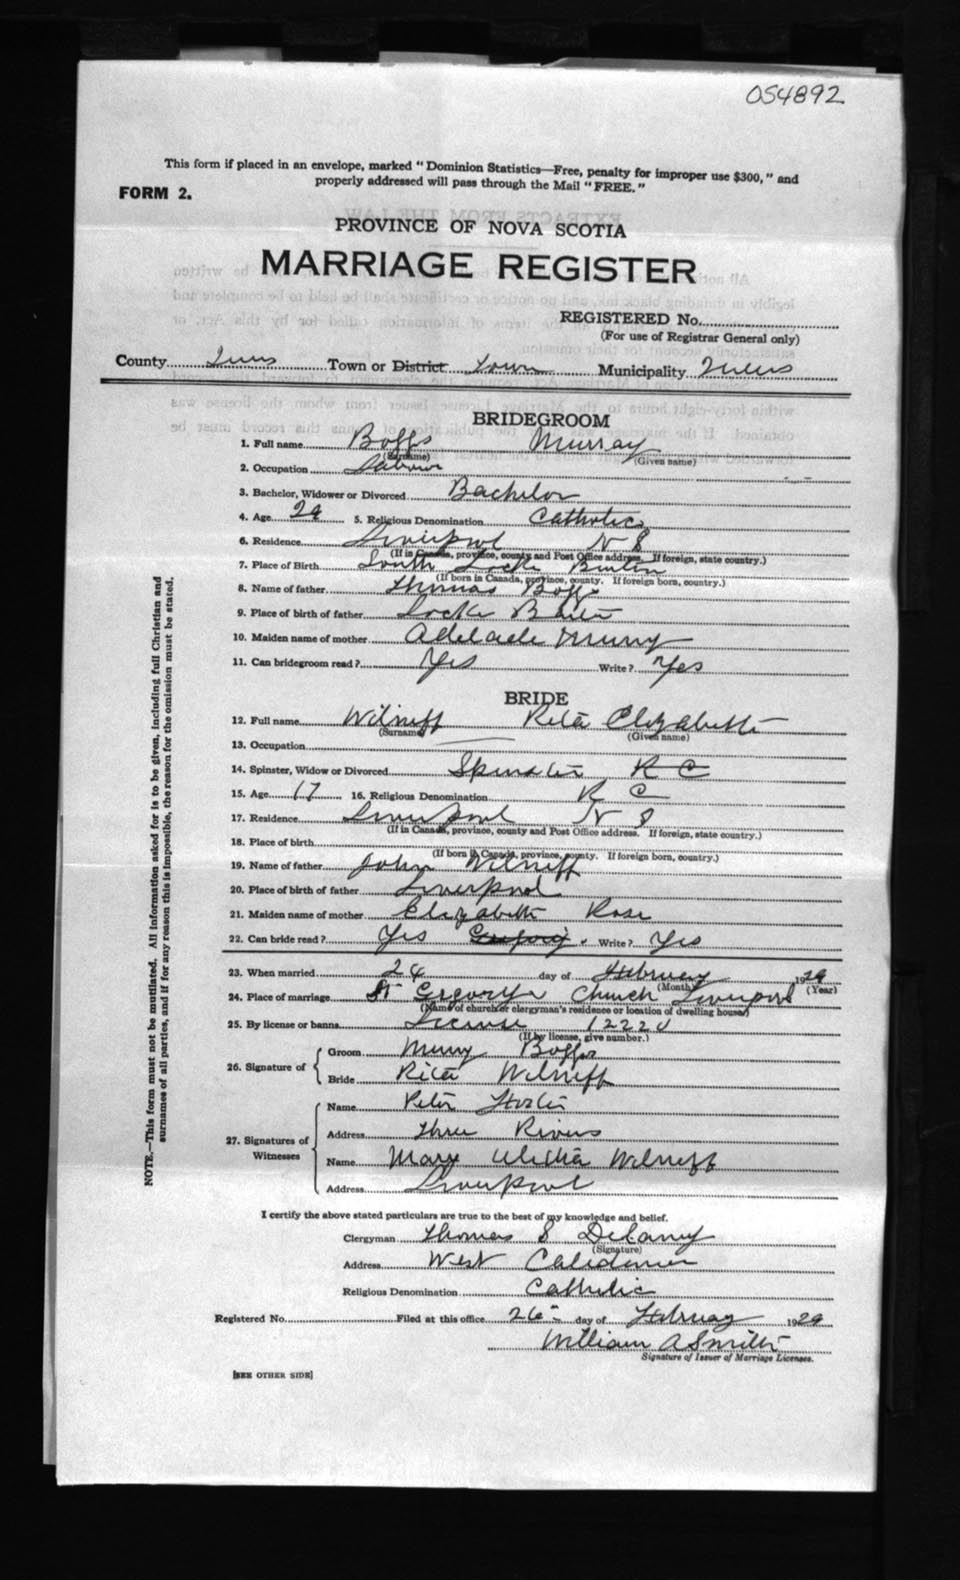 054892
This form if placed in an envelope, marked "Dominion Statistics—Free, penalty for improper use $300," and
properly addressed will pass through the Mail "FREE."
FORM 2.
PROVINCE OF NOVA SCOTIA
MARRIAGE REGISTER
REGISTERED No.
(For use of Registrar General only)
County Town or District Town Municipality Queens
BRIDEGROOM
1. Full name Boffs Murray
(Surname) (Given name)
2. Occupation Labour
3. Bachelor, Widower or Divorced Bachelor
4. Age 29 5. Religious Denomination Catholic
6. Residence Liverpool N S
(If in Canada, province, county and Post Office address. If foreign, state country.)
7. Place of Birth South Locke
(If born in Canada, province, county. If foreign born, country.)
8. Name of father Thomas Boffs
9. Place of birth of father Locke
10. Maiden name of mother Adelaide
11. Can bridegroom read? Yes Write? Yes
BRIDE
12. Full name Wilneff Rita Elizabeth
(Surname) (Given name)
13. Occupation
14. Spinster, Widow or Divorced Spinster R C
15. Age 17 16. Religious Denomination R C
17. Residence Liverpool N S
(If in Canada, province, county and Post Office address. If foreign, state country.)
18. Place of birth
(If born in Canada, province, county. If foreign born, country.)
19. Name of father John Wilneff
20. Place of birth of father Liverpool
21. Maiden name of mother Elizabeth Rose
22. Can bride read? Yes Gregory. Write? Yes
23. When married 24 day of February 1929
(Month) (Year)
24. Place of marriage St Gregorys Church Liverpool
(Name of church or clergyman's residence or location of dwelling house)
25. By license or banns License
(If by license, give number.)
26. Signature of
Groom Murry Boffs
Bride Rita Wilneff
27. Signatures of Witnesses
Name Peter
Address Three Rivers
Name Mary Wilneff
Address Liverpool
I certify the above stated particulars are true to the best of my knowledge and belief.
Clergyman Thomas S Delaney
(Signature)
Address West Caledonia
Religious Denomination Catholic
Registered No. Filed at this office 26 day of February 1929
William A Smith
Signature of Issuer of Marriage Licenses.
[SEE OTHER SIDE]
NOTE.—This form must not be mutilated. All information asked for is to be given, including full Christian and
surnames of all parties, and if for any reason this is impossible, the reason for the omission must be stated.